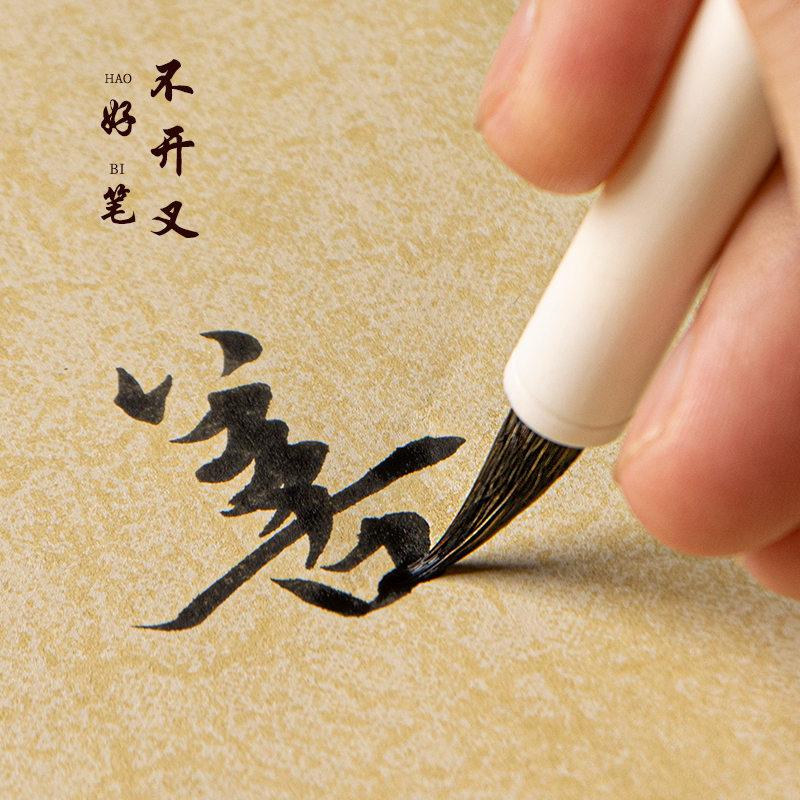 不开叉
HAO
好
BI
笔